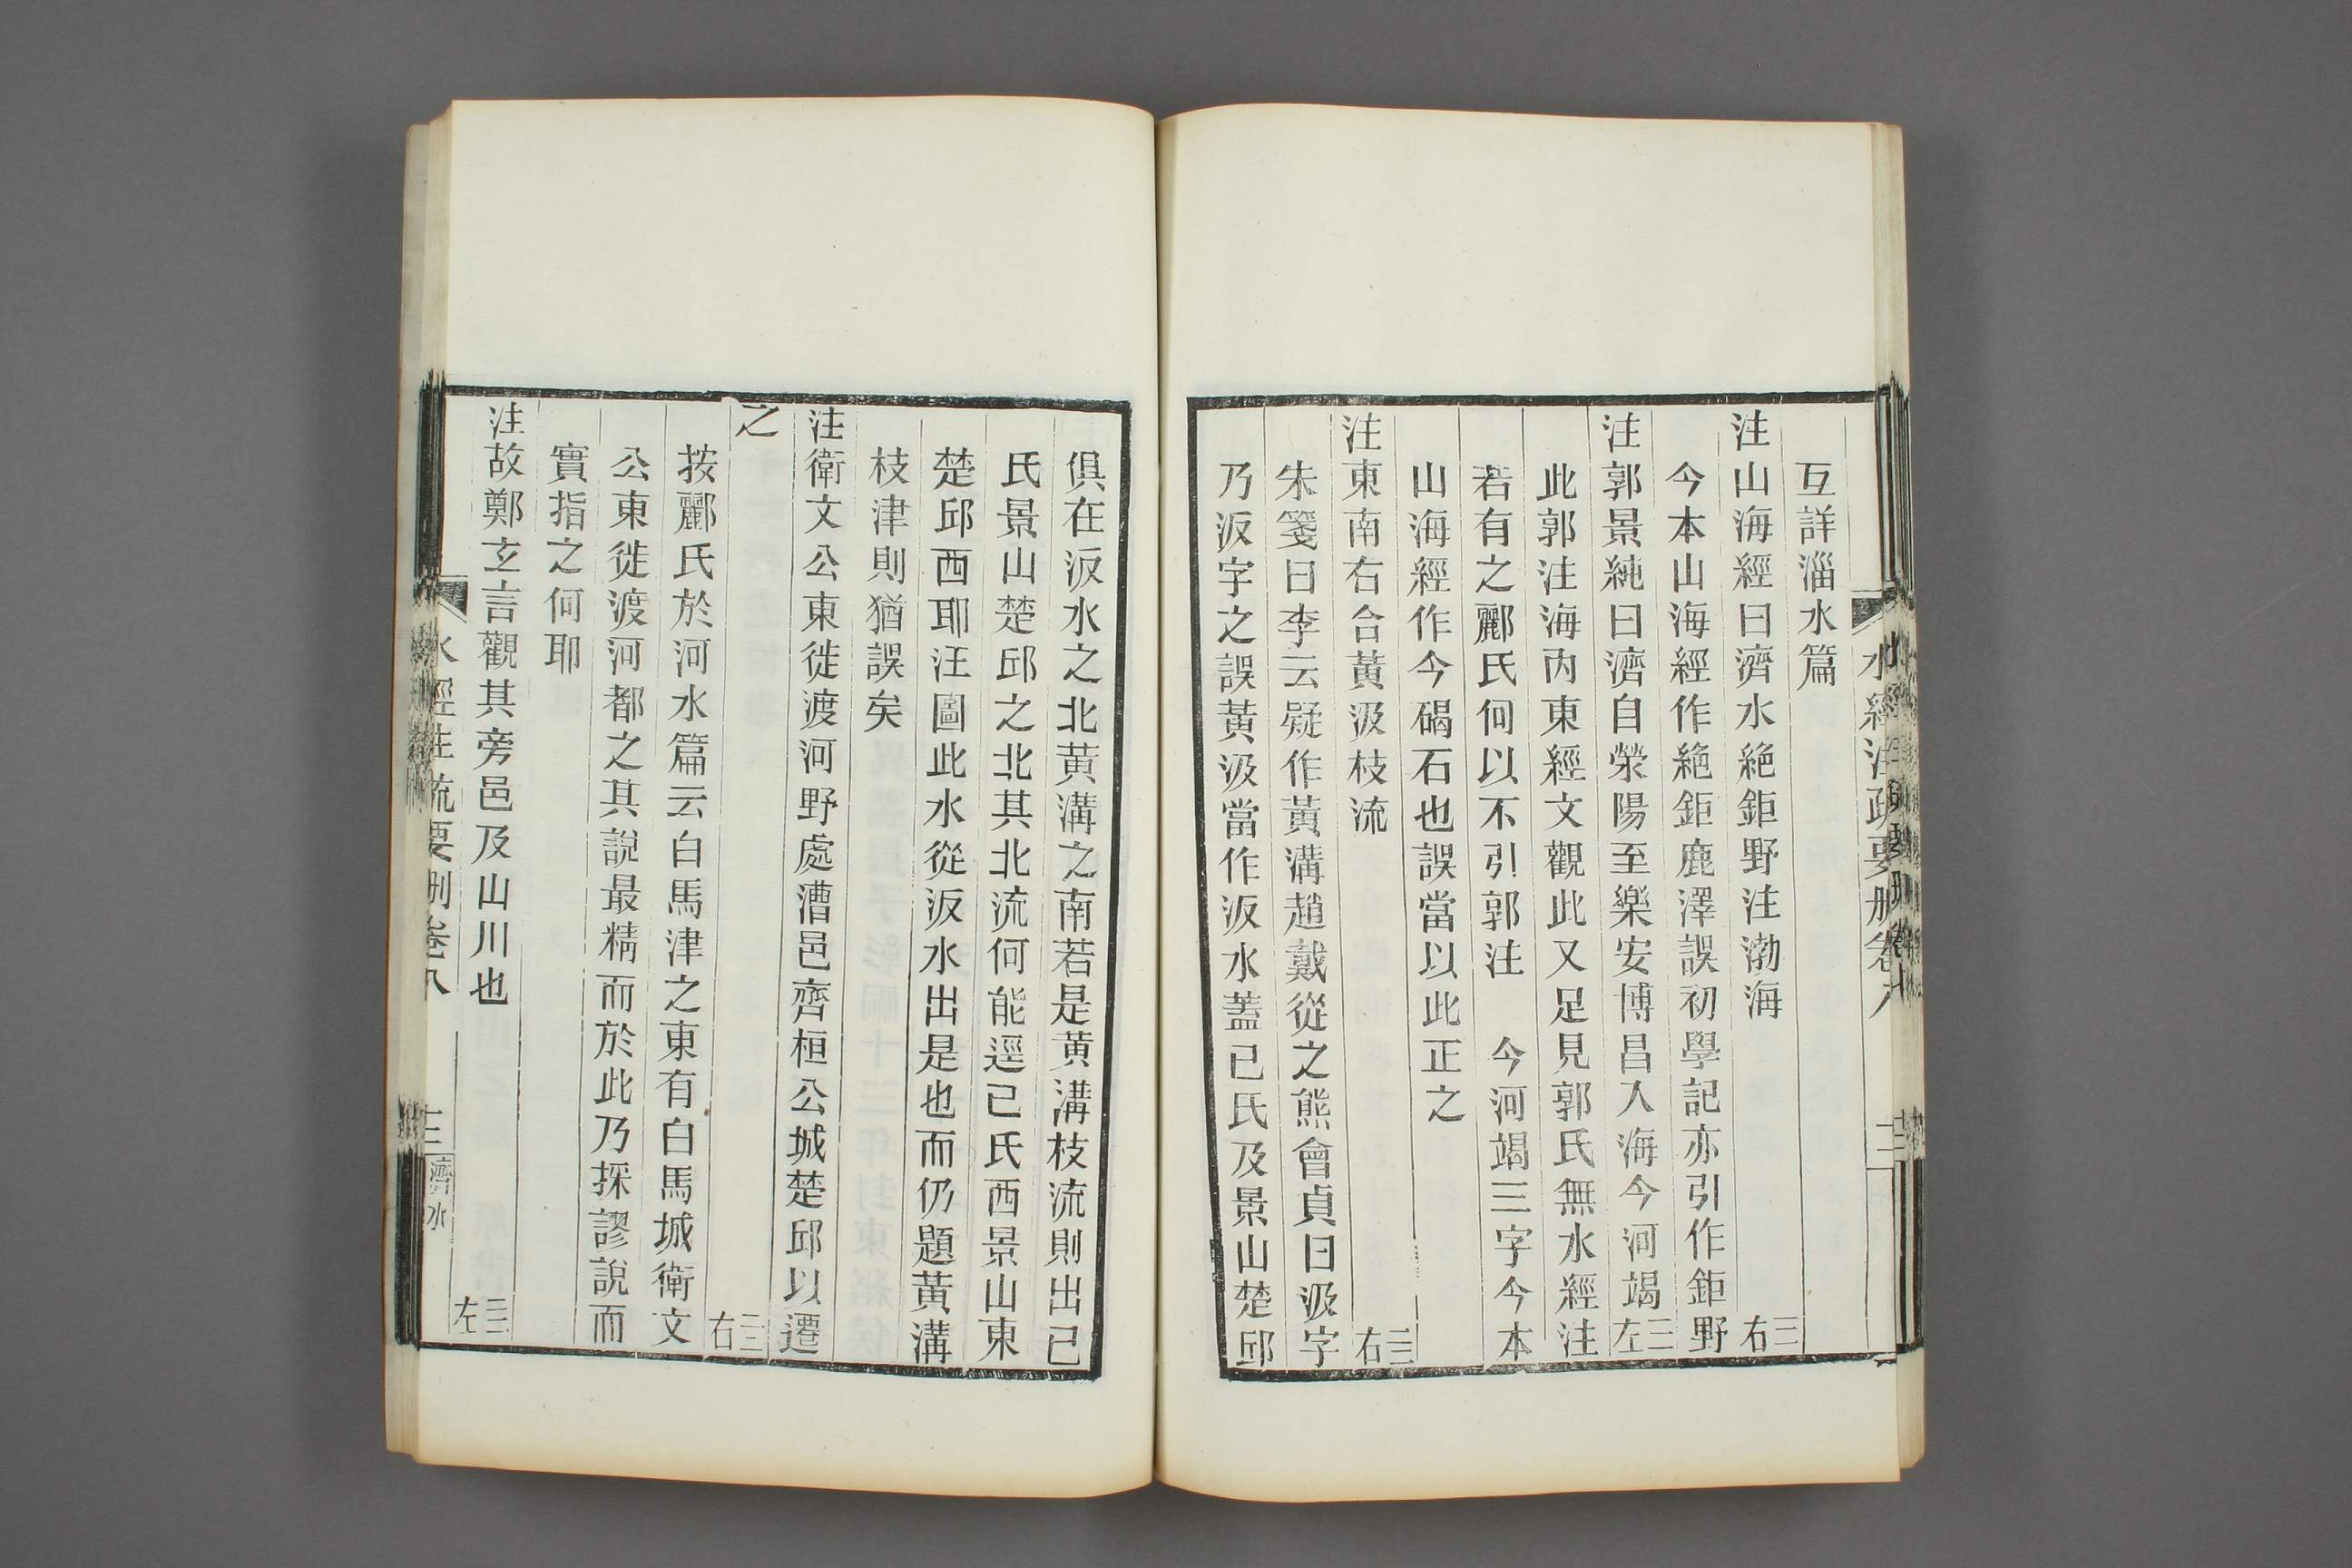 水經注疏要刪卷八
互詳淄水篇
注山海經曰濟水絶鉅野注渤海 三右
今本山海經作絶鉅鹿澤誤初學記亦引作鉅野
注郭景純曰濟自滎陽至樂安博昌入海今河竭 三左
此郭注海內東經文觀此又足見郭氏無水經注
若有之酈氏何以不引郭注 今河竭三字今本
山海經作今碣石也誤當以此正之
注東南右合黃汲枝流 三右
朱箋曰李云疑作黃溝趙戴從之熊會貞曰汲字
乃汳字之誤黃汲當作汳水蓋己氏及景山楚邱
俱在汳水之北黃溝之南若是黃溝枝流則出己
氏景山楚邱之北其北流何能逕己氏西景山東
楚邱西耶汪圖此水從汳水出是也而仍題黃溝
枝津則猶誤矣
注衛文公東徙渡河野處漕邑齊桓公城楚邱以遷
之 三右
按酈氏於河水篇云白馬津之東有白馬城衛文
公東徙渡河都之其說最精而於此乃採謬說而
實指之何耶
注故鄭玄言觀其旁邑及山川也 三左
水經注疏要刪卷八 三 濟水